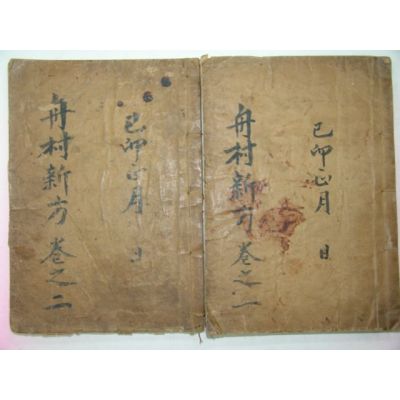 己卯正月 日
舟村新方 卷之一
己卯正月 日
舟村新方 卷之二